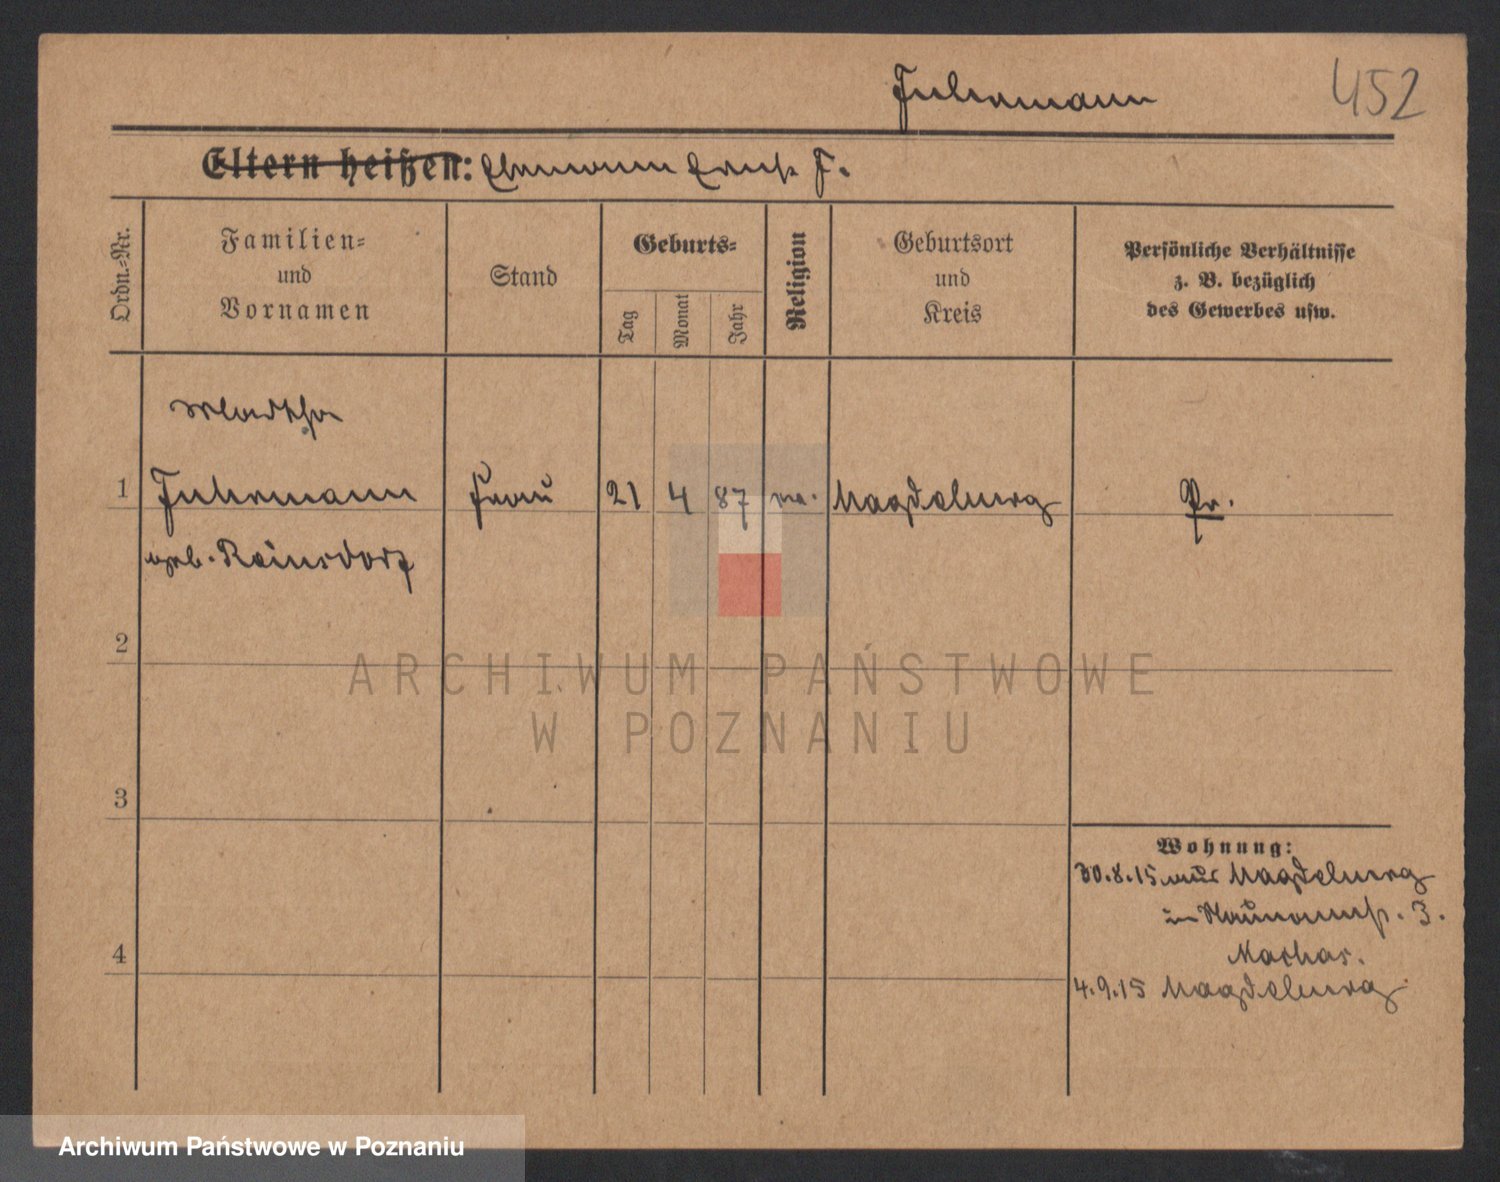 Fuhrmann 452
Eltern heißen: Ehemann Ernst F.
Ordn.-Nr.
Familien-
und
Vornamen
Stand
Geburts-
Tag
Monat
Jahr
Religion
Geburtsort
und
Kreis
Persönliche Verhältnisse
z. B. bezüglich
des Gewerbes usw.
Martha
1 Fuhrmann Frau 21 4 87 Magdeburg Pr.
geb. Reinsdorf
2
ARCHIWUM PAŃSTWOWE
W POZNANIU
3
Wohnung:
30.8.15 aus Magdeburg
in 3.
4
4.9.15 Magdeburg
Archiwum Państwowe w Poznaniu